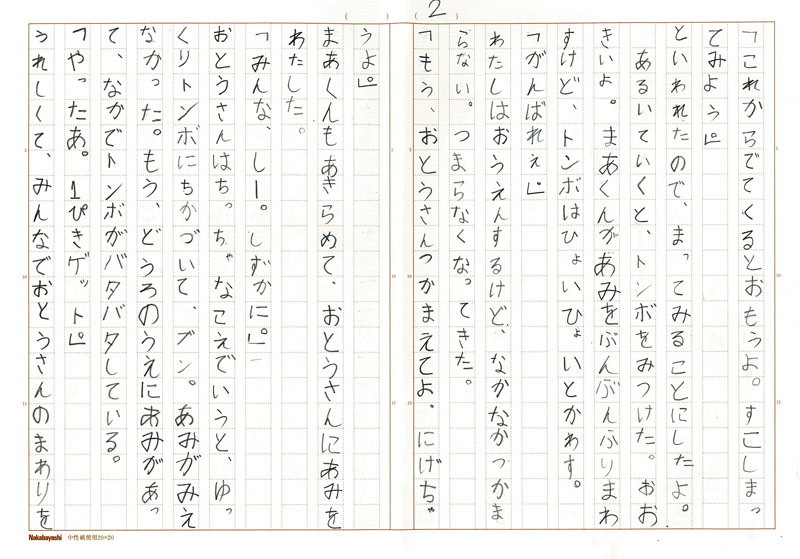 2
「これからでてくるとおもうよ。すこしまっ
てみよう。」
といわれたので、まってみることにしたよ。
あるいていくと、トンボをみつけた。おお
きいよ。まあくんがあみをぶんぶんふりまわ
すけど、トンボはひょいひょいとかわす。
「がんばれぇ。」
わたしはおうえんするけど、なかなかつかま
らない。つまらなくなってきた。
「もう、おとうさんつかまえてよ、にげちゃ
うよ。」
まあくんもあきらめて、おとうさんにあみを
わたした。
「みんな、しー。しずかに。」
おとうさんはちっちゃなこえでいうと、ゆっ
くりトンボにちかづいて、ブン。あみがみえ
なかった。もう、どうろのうえにあみがあっ
て、なかでトンボがバタバタしている。
「やったあ。1ぴきゲット。」
うれしくて、みんなでおとうさんのまわりを
Nakabayashi 中性紙使用20×20